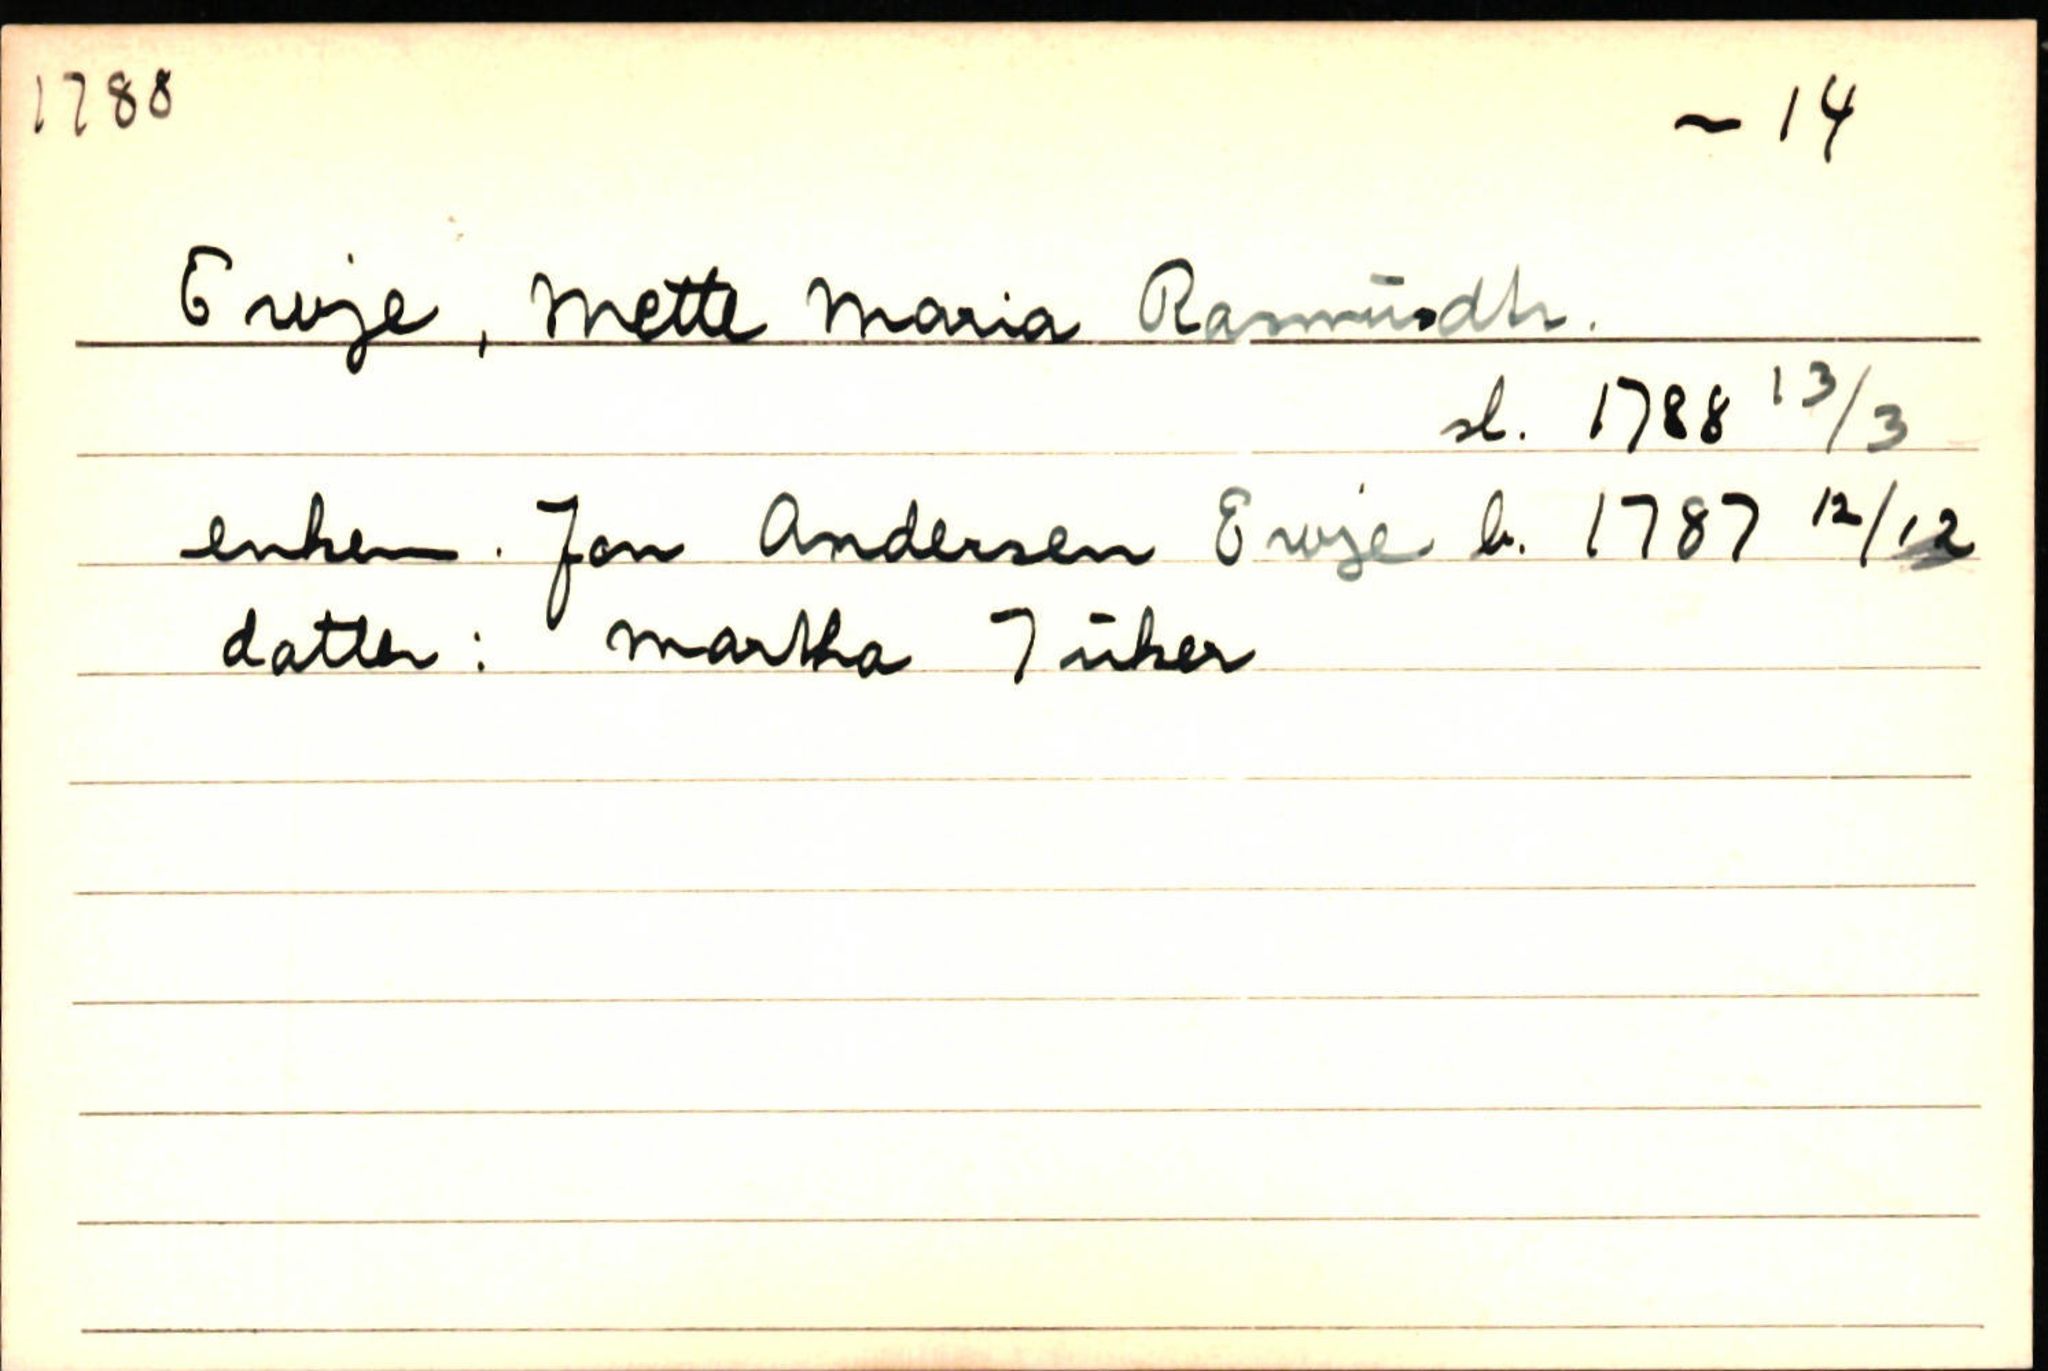 1788
~ 14
Ewje, Mette Maria Rasmusdtr.
sl. 1788 13/3
enkem. Jan Andersen Ewje b. 1787 12/12
datter: Martha Tuker